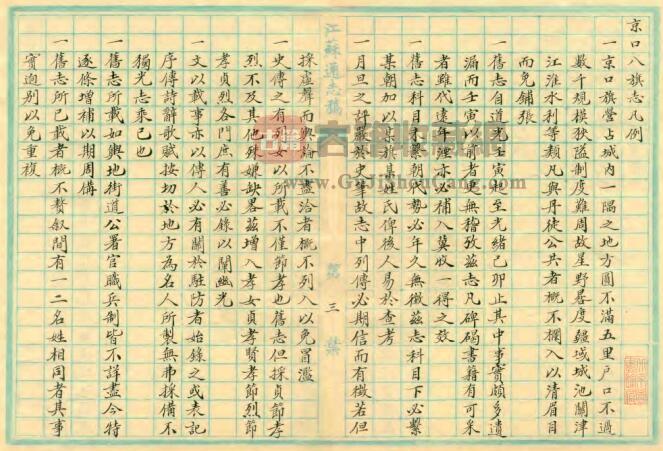 京口八旗志凡例
一京口旗營占城內一隅之地方圓不滿五里戶口不過
數千規模狹隘制度難周故星野晷度疆域城池關津
江淮水利等類凡與丹徒公共者概不欄入以清眉目
而免鋪張
一舊志自道光壬寅起至光緒己卯止其中事實頗多遺
漏而壬寅以前者更無稽攷茲志凡碑碣書籍有可采
者雖代遠年湮亦必補入冀收一得之效
一舊志科目未繫朝代勢必年久無徵茲志科目下必繫
某朝加以某旗某姓氏俾後人易於查考
一月旦之評嚴於史筆故志中列傳必期信而有徵若但
採虛聲而輿論不盡洽者概不列入以免冒濫
一史傳之有列女以所載不僅節孝也舊志但採貞節孝
烈不及其他殊嫌缺畧茲增入孝女貞孝賢孝節烈節
孝貞烈各門庶有善必錄以闡幽光
一文以載事亦以傳人必有關於駐防者始錄之或表記
序傳詩辭歌賦按切於地方為名人所製無弗採備不
獨光志乘已也
一舊志所載如輿地街道公署官職兵制皆不詳盡今特
逐條增補以期周備
一舊志所已載者概不贅叙間有一二名姓相同者其事
實迥別以免重複
江蘇通志稿
第三葉
www.GuJiShouCang.com